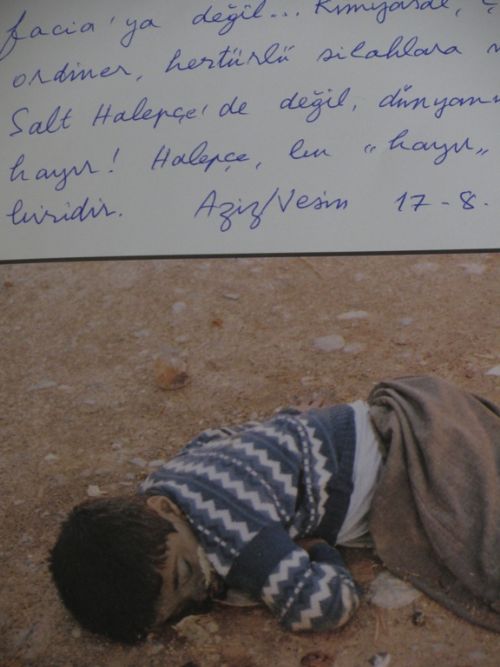 facia'ya değil... Kimyasal,
ordiner, hertürlü silahlara
Salt Halepçe'de değil, dünyanın
hayır! Halepçe, bu „hayır„
biridir. Aziz/Vesin 17-8.